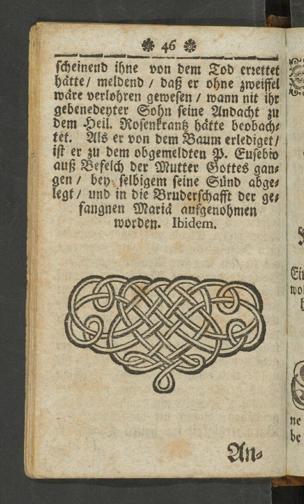 ❉ 46 ❉
scheinend ihne von dem Tod errettet
hätte / meldend / daß er ohne zweiffel
wäre verlohren gewesen / wann nit ihr
gebenedeyter Sohn seine Andacht zu
dem Heil. Rosenkrantz hätte beobach-
tet. Als er von dem Baum erlediget /
ist er zu dem obgemeldten P. Eusebio
auß Befelch der Mutter Gottes gan-
gen / bey selbigem seine Sünd abge-
legt / und in die Bruderschafft der ge-
fangnen Mariä aufgenohmen
worden. Ibidem.
An-